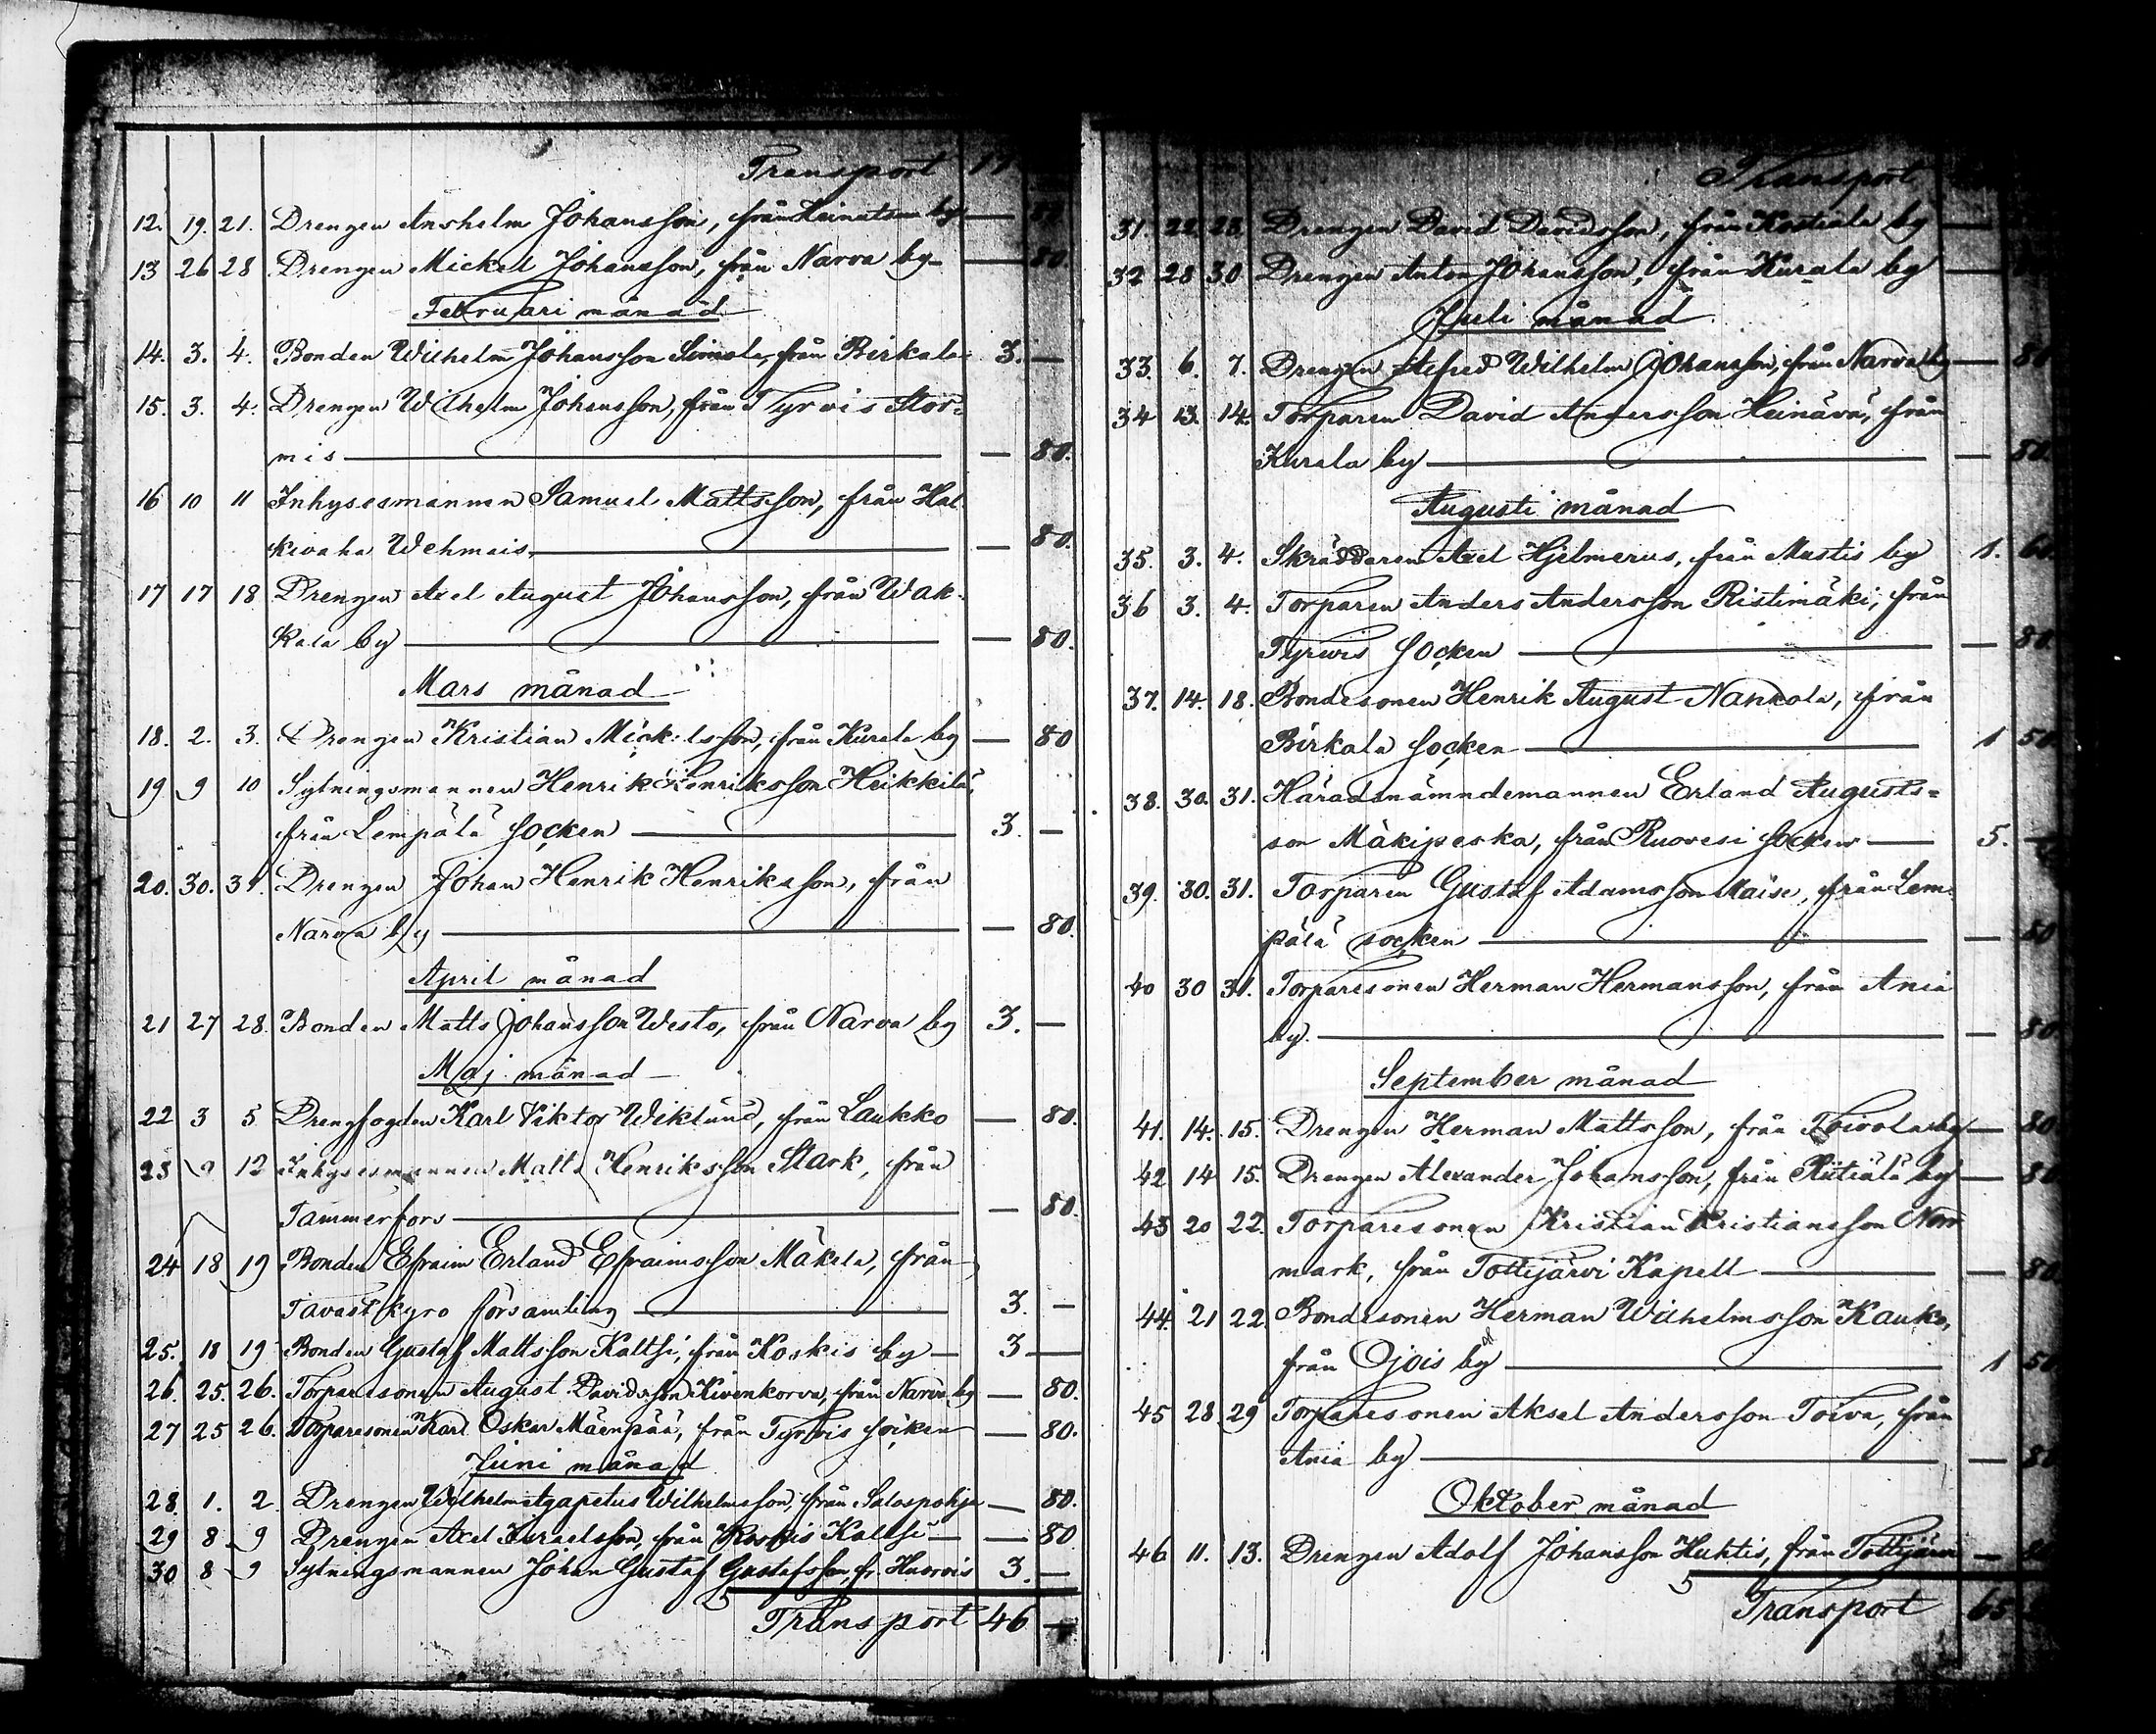 Transport 17
12. 19. 21. Drengen Anshelm Johansson, från by — 80
13 26 28 Drengen Mickel Johansson, från Narva by — 80.
Februari månad
14. 3. 4. Bonden Wilhelm Johansson Simola, från Birkala 3. —
15. 3. 4. Drengen Wilhelm Johansson, från Tyrvis Stor=
mis — 80.
16 10 11 Inhysesmannen Samuel Mattsson, från Hal
kivaha Wehmais. — 80.
17 17 18 Drengen Axel August Johansson, från Wak-
kala by — 80.
Mars månad
18. 2. 3. Drengen Kristian Mickelsson, från Kurala by — 80
19 9 10 Sytningsmannen Henrik Henriksson Heikkilä,
från Lempälä socken 3. —
20. 30. 31. Drengen Johan Henrik Henriksson, från
Narva by — 80.
April månad
21 27 28. Bonden Matts Johansson Westo, från Narva by 3. —
Maj månad
22 3 5 Drengfogden Karl Viktor Wiklund, från Laukko — 80.
23 9 12 Inhysesmannen Matts Henriksson Stark, från
Tammerfors — 80.
24 18 19 Bonden Efraim Erland Efraimsson Mäkelä, från
Tavastkyro församling 3. —
25. 18 19 Bonden Gustaf Mattsson Kaltsi, från Koskis by 3 —
26. 25. 26. Torparesonen August Davidsson Kivenkorva, från Narva by — 80.
27 25 26. Torparesonen Karl Oskar Mäenpää, från Tyrvis socken — 80.
Juni månad
28. 1. 2. Drengen Wilhelm Agapetus Wilhelmsson, från Salospohja — 80.
29 8. 9 Drengen Axel Israelsson, från Koskis Kaltsi — 80
30 8 9 Sytningsmannen Johan Gustaf Gustafsson, fr. Huorvis 3. —
Transport 46 —
Transport
31. 22. 23. Drengen David Davidsson, från Kostiala by —
32 28 30 Drengen Anton Johansson, från Kurala by —
Juli månad
33. 6. 7. Drengen Alfred Wilhelm Johansson, från Narva by — 80
34 13. 14. Torparen David Andersson Heinävä, från
Kurala by — 80.
Augusti månad
35. 3. 4. Skräddaren Axel Hjelmerus, från Mustis by 1. 60.
36 3. 4. Torparen Anders Andersson Ristimäki, från
Tyrwis socken — 80.
37. 14. 18. Bondesonen Henrik August Nankola, från
Birkala socken 1 50
38. 30. 31. Häradsnämndemannen Erland Augusts=
son Mäkipeska, från Ruovesi socken 5. —
39. 30. 31. Torparen Gustaf Adamsson Maise, från Lem
pälä socken — 80
40 30 31. Torparesonen Herman Hermansson, från Ania
by. — 80
September månad
41. 14. 15. Drengen Herman Mattsson, från Toivola by — 80
42 14 15. Drengen Alexander Johansson, från Riitiälä by — 80
43 20 22. Torparesonen Kristian Kristiansson Norr
mark, från Tottijärvi Kapell — 80
44. 21 22. Bondesonen Herman Wilhelmsson Kauko,
från Ojois by 1 50
45 28 29 Torparesonen Aksel Andersson Toiva, från
Ania by — 80
Oktober månad
46 11. 13. Drengen Adolf Johansson Huhtis, från Tottijärvi — 80
Transport 65